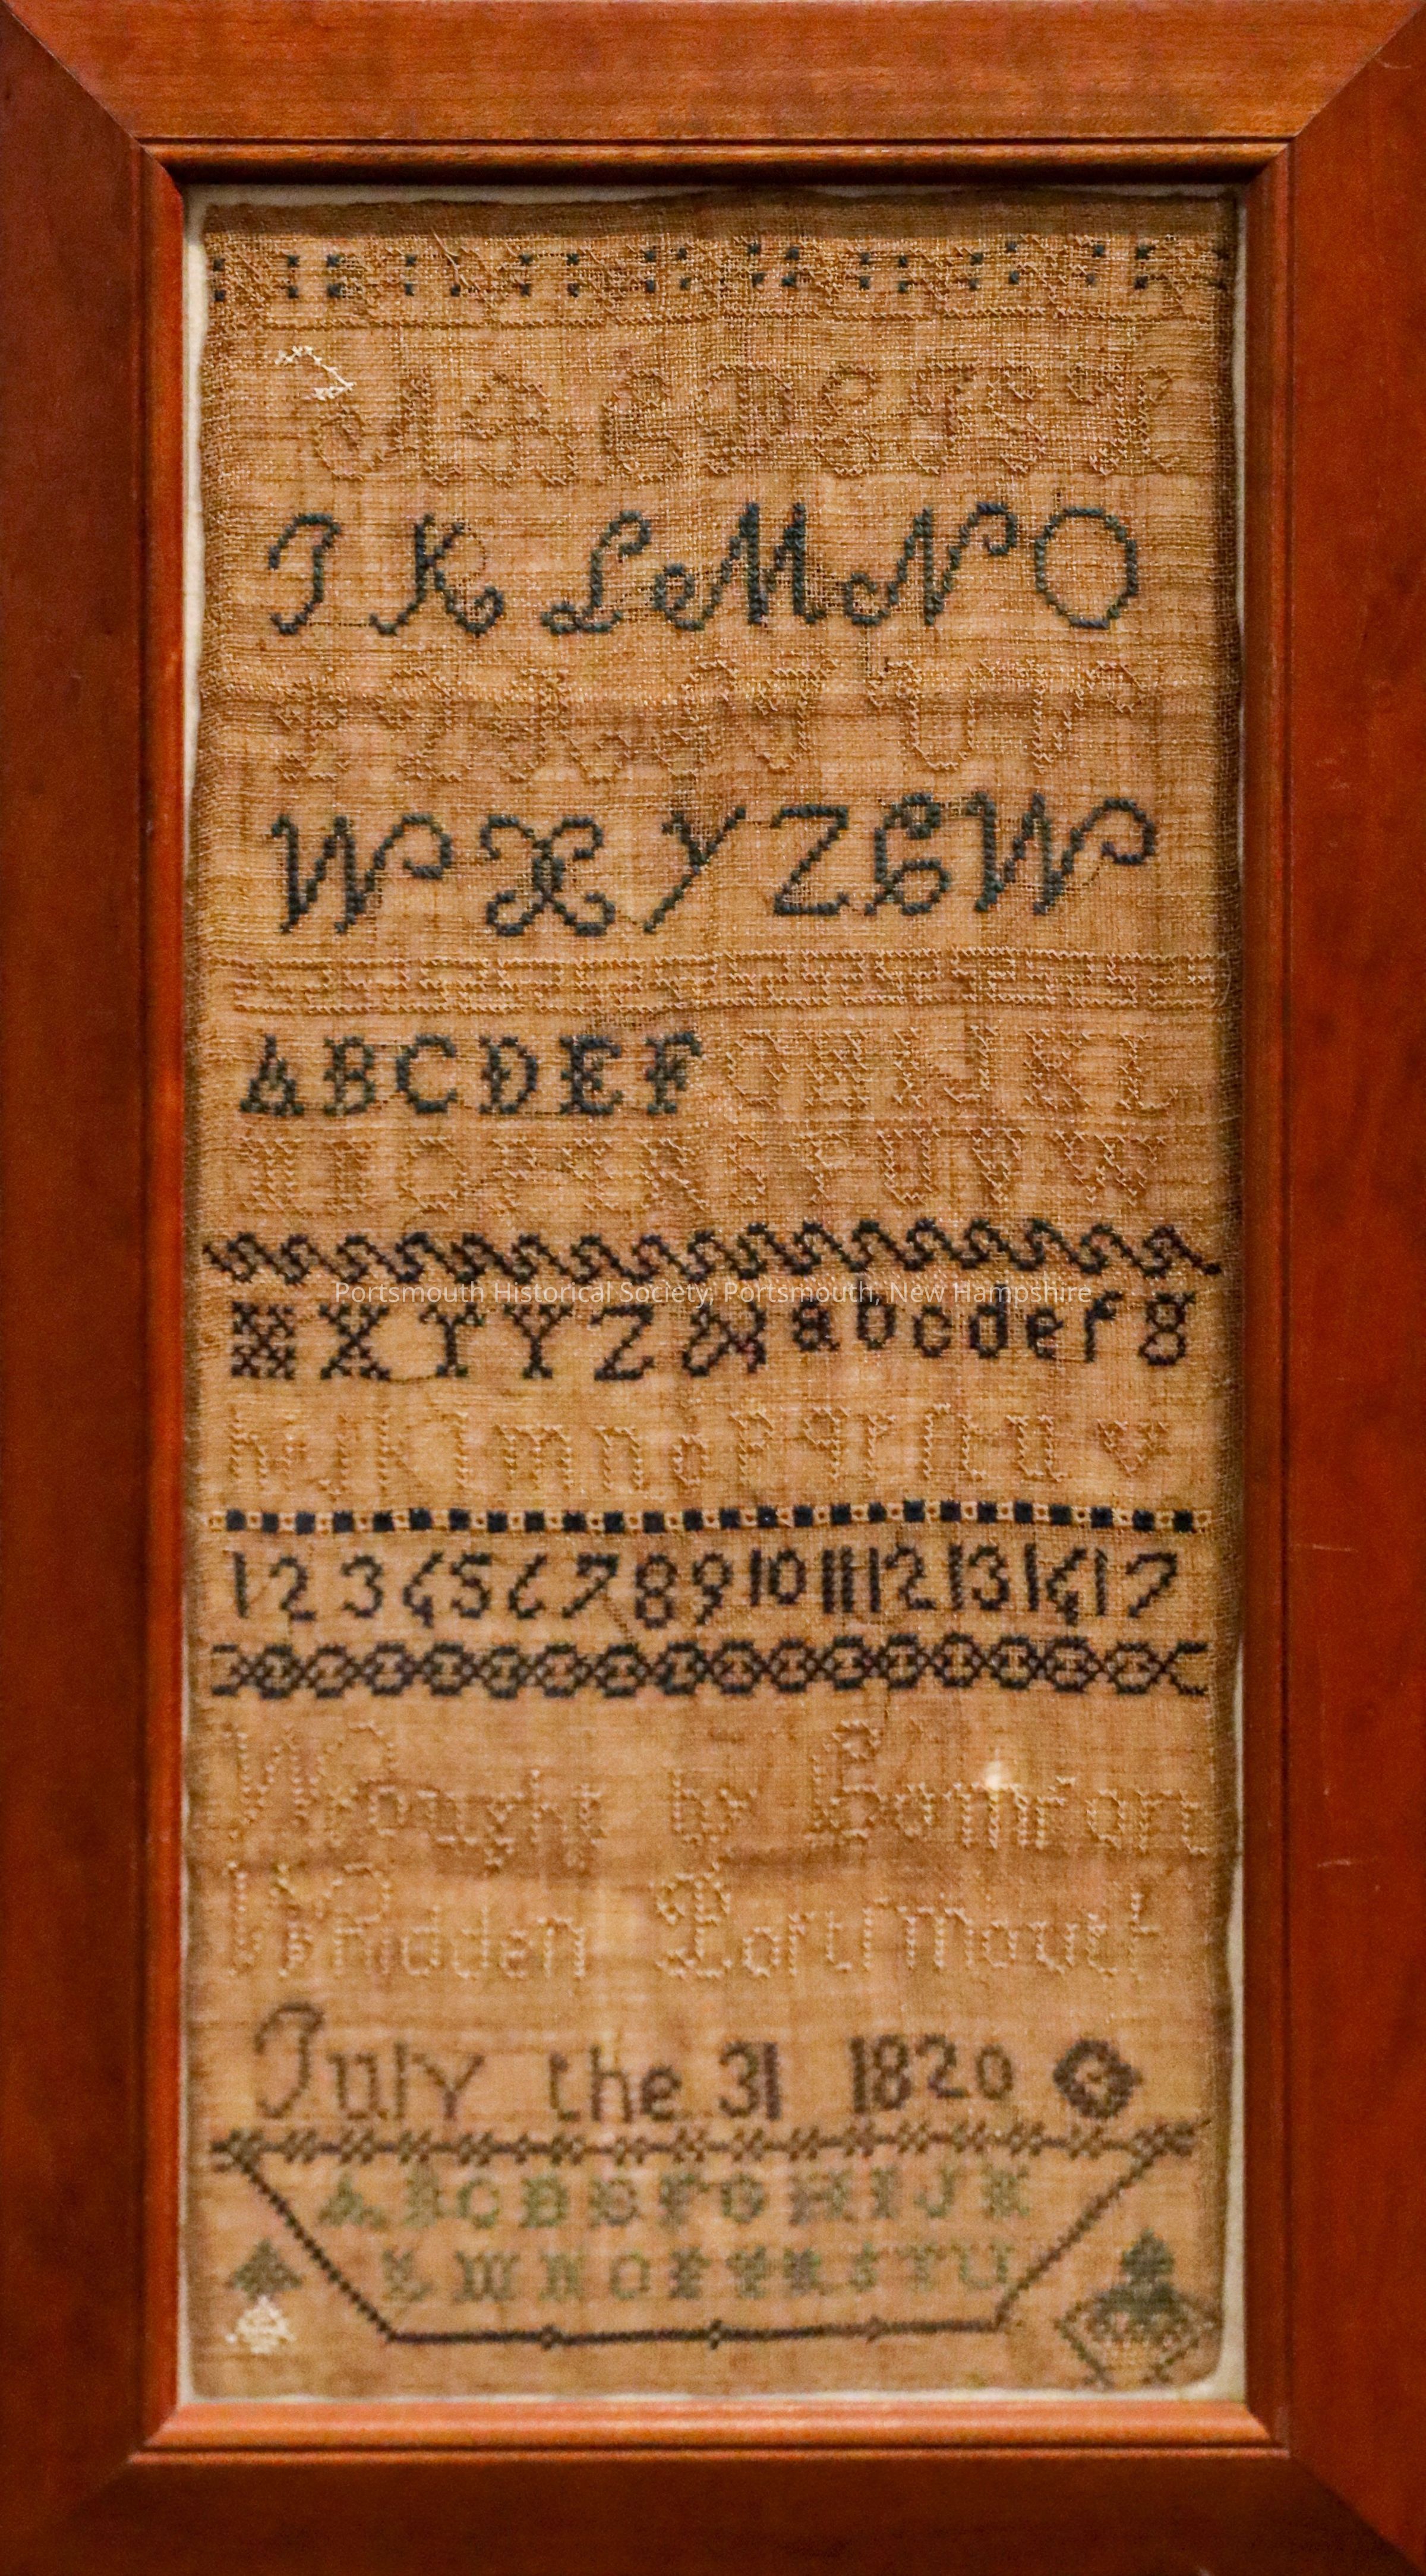 A B C D E F G H
I K L M N O
P Q R S T U V
W X Y Z & W
A B C D E F G H I J K L
M N O P Q R S T U V W
Portsmouth Historical Society, Portsmouth, New Hampshire
X Y Y Z & a b c d e f g
h i j k l m n o p q r ſ t u v
1 2 3 4 5 6 7 8 9 10 11 12 13 14 17
Wrought by
Whidden Portſmouth
July the 31 1820
A B C D E F G H I J K
L M N O P Q R S T U